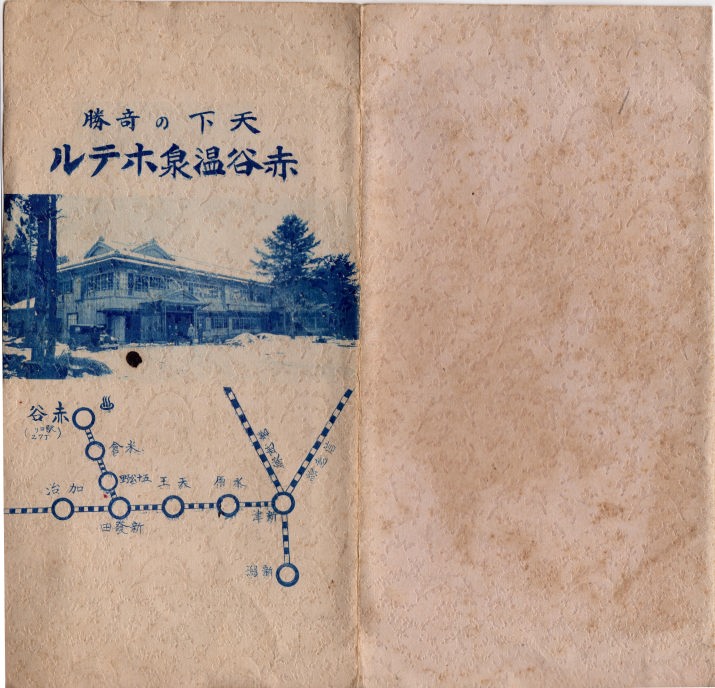 天下の竒勝
赤谷温泉ホテル
赤谷
米倉
五十公野
加治
新發田
天王
水原
新津
新潟
磐越線
信越線